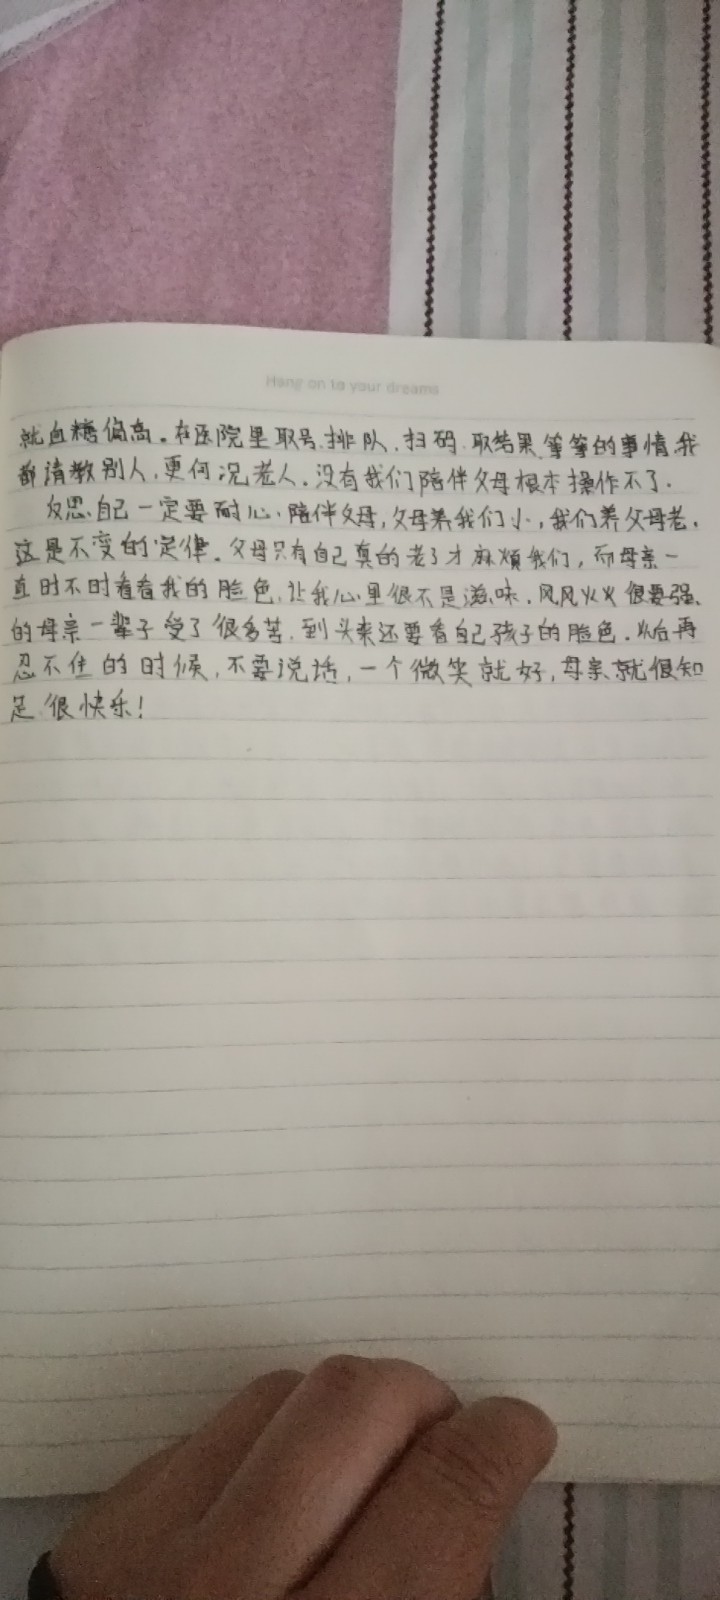 Hang on to your dreams
就血糖偏高。在医院里取号、排队、扫码、取结果、等等的事情,我
都请教别人,更何况老人。没有我们陪伴父母根本操作不了.
反思自己一定要耐心陪伴父母,父母养我们小,我们养父母老,
这是不变的定律。父母只有自己真的老了才麻烦我们,而母亲一
直时不时看看我的脸色,让我心里很不是滋味.风风火火很要强
的母亲一辈子受了很多苦,到头来还要看自己孩子的脸色.以后再
忍不住的时候,不要说话,一个微笑就好,母亲就很知
足.很快乐!